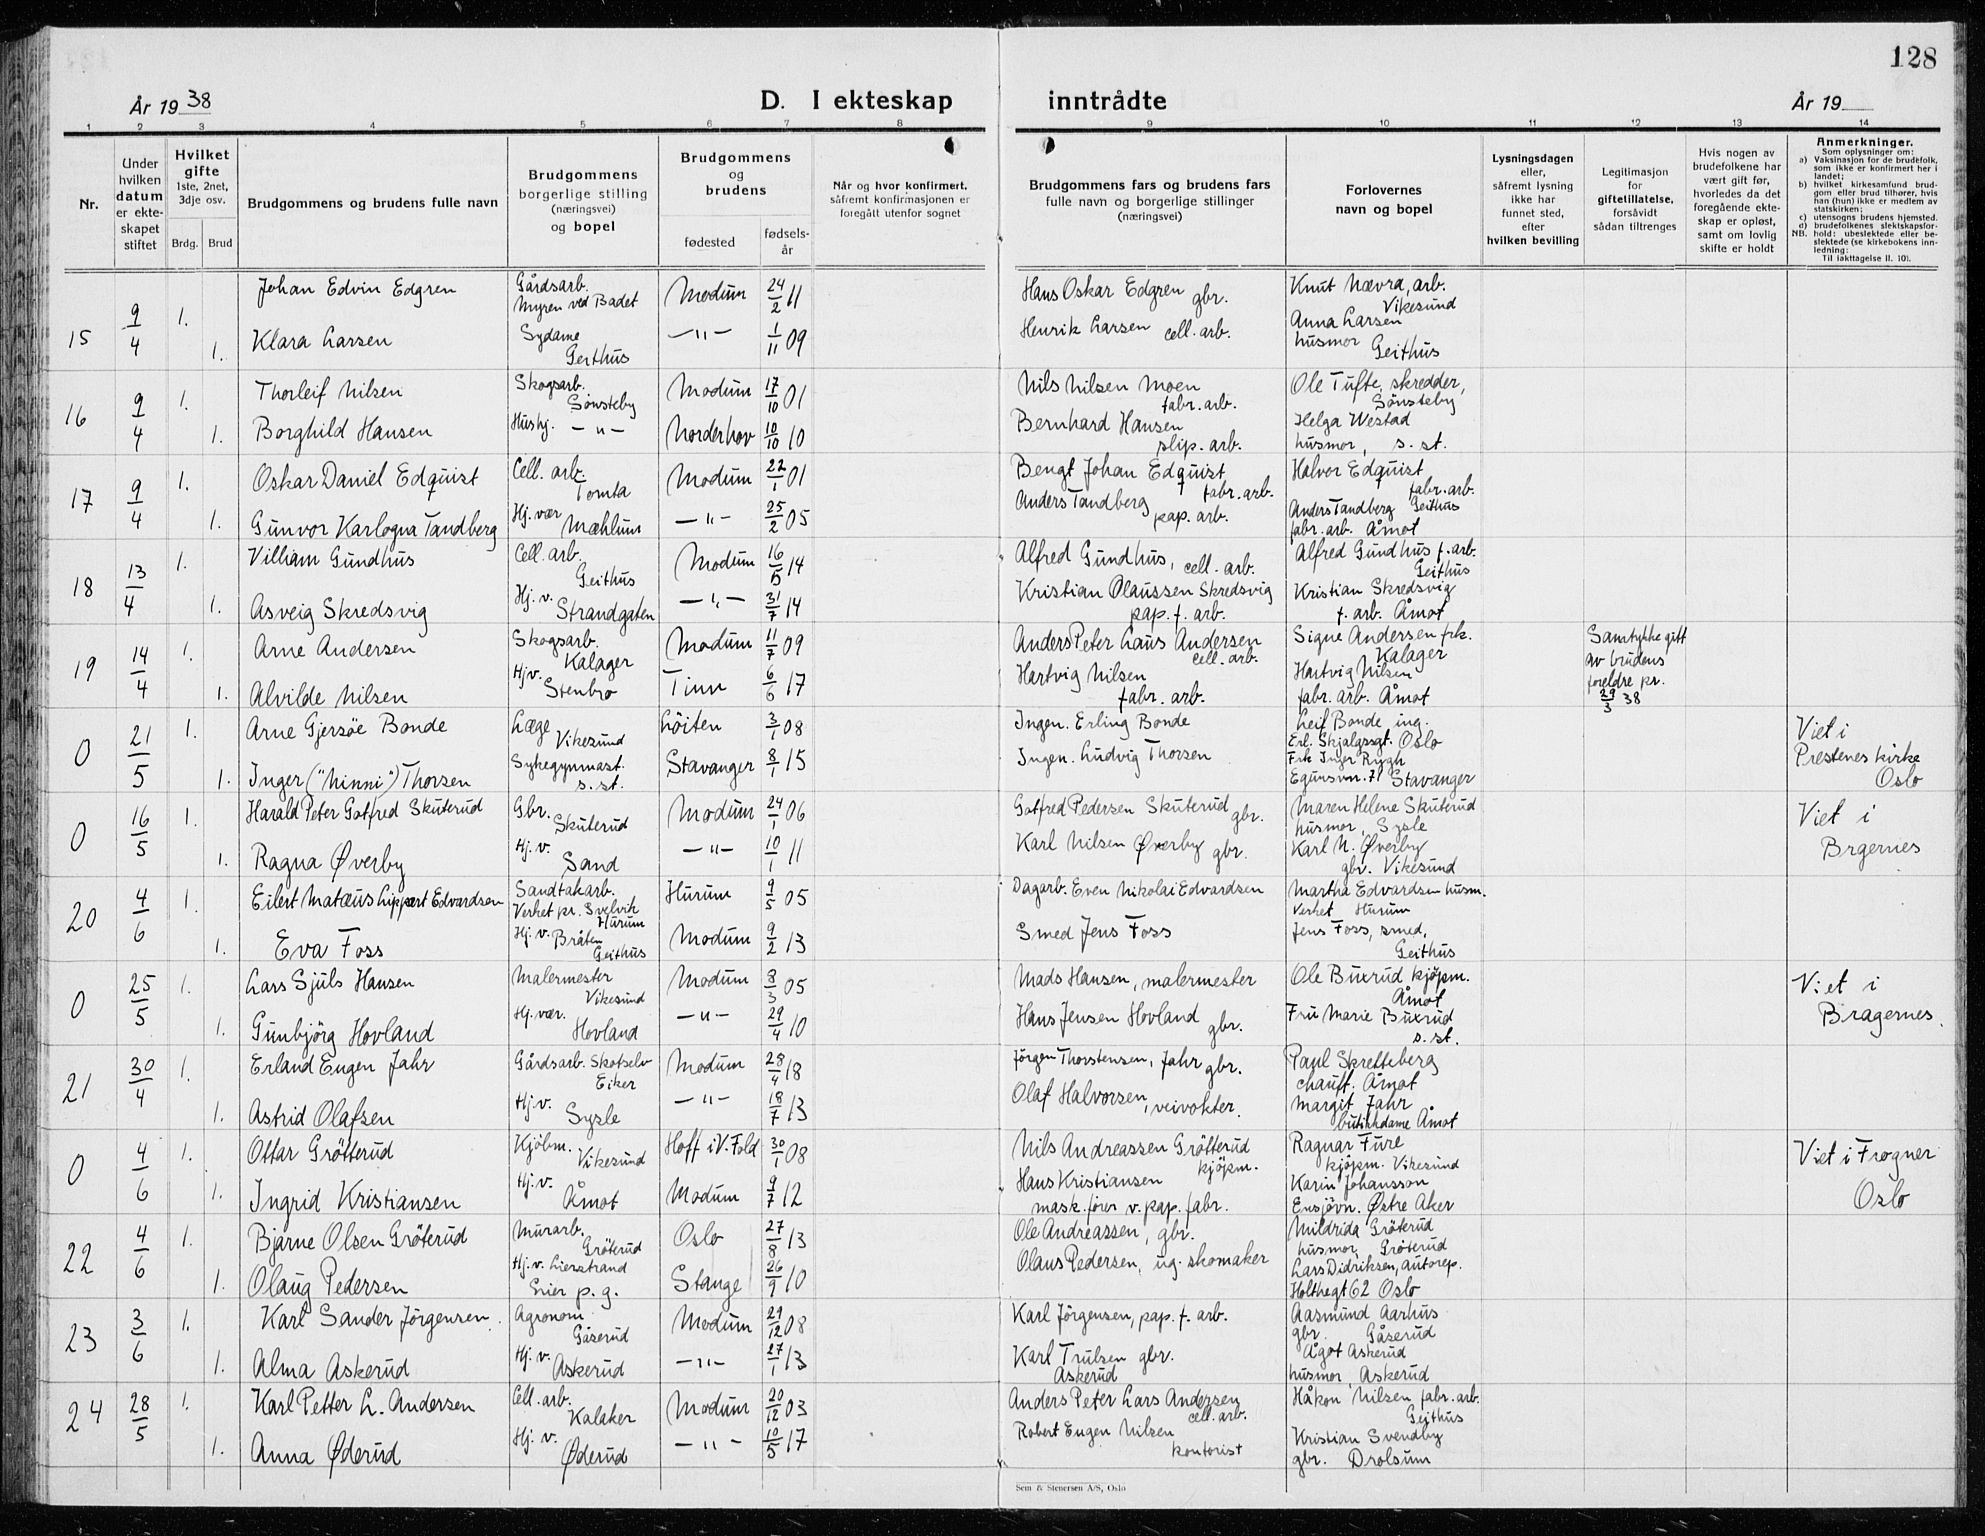 128
År 1938
D. I ekteskap inntrådte
År 19
1 2 3 4 5 6 7 8 9 10 11 12 13 14
Nr.
Under
hvilken
datum
er ekte-
skapet
stiftet
Hvilket
gifte
1ste, 2net,
3dje osv.
Brdg. Brud
Brudgommens og brudens fulle navn
Brudgommens
borgerlige stilling
(næringsvei)
og bopel
Brudgommens
og
brudens
fødested
fødsels-
år
Når og hvor konfirmert,
såfremt konfirmasjonen er
foregått utenfor sognet
Brudgommens fars og brudens fars
fulle navn og borgerlige stillinger
(næringsvei)
Forlovernes
navn og bopel
Lysningsdagen
eller,
såfremt lysning
ikke har
funnet sted,
efter
hvilken bevilling
Legitimasjon
for
giftetillatelse,
forsåvidt
sådan tiltrenges
Hvis nogen av
brudefolkene har
vært gift før,
hvorledes da det
foregående ekte-
skap er opløst,
samt om lovlig
skifte er holdt
Anmerkninger.
Som oplysninger om:
a) Vaksinasjon for de brudefolk,
som ikke er konfirmert her i
landet;
b) hvilket kirkesamfund brud-
gom eller brud tilhører, hvis
han (hun) ikke er medlem av
statskirken;
c) utensogns brudens hjemsted.
d) brudefolkenes slektskapsfor-
NB. hold: ubeslektede eller be-
slektede (se kirkebokens inn-
ledning:
Til iakttagelse II. 10).
15 9/4 1. Johan Edvin Edgren Gårdsarb. Myren ved Badet Modum 24/2 11 Hans Oskar Edgren gbr. Knut Nævra, arb. Vikesund
1. Klara Larsen Sydame Geithus —"— 1/11 09 Henrik Larsen cell. arb. Anna Larsen husmor Geithus
16 9/4 1. Thorleif Nilsen Skogsarb. Sønsteby Modum 17/10 01 Nils Nilsen Moen fabr. arb. Ole Tufte, skredder, Sønsteby
1. Borghild Hansen Hushj. —"— Norderhov 10/10 10 Bernhard Hansen slip. arb. Helga Westad husmor, s. st.
17 9/4 1. Oskar Daniel Edquist Cell. arb. Tomta Modum 22/1 01 Bengt Johan Edquist fabr. arb. Halvor Edquist fabr. arb. Geithus
1. Gunvor Karlogna Tandberg Hj. vær Mæhlum —"— 25/2 05 Anders Tandberg pap. arb. Anders Tandberg fabr. arb. Åmot
18 13/4 1. Villiam Gundhus Cell. arb. Geithus Modum 14 Alfred Gundhus, cell. arb. Alfred Gundhus f. arb. Geithus
1. Asveig Skredsvig Hj. v. Strandgaten —"— 31/7 14 Kristian Olaussen Skredsvig pap. f. arb. Kristian Skredsvig f. arb. Åmot
19 14/4 1. Arne Andersen Skogsarb. Kalager Modum 11/7 09 Anders Peter Laus Andersen cell. arb. Signe Andersen frk. Kalager Samtykke gitt
1. Alvilde Nilsen Hjv. Stenbro Tinn 6/6 17 Hartvig Nilsen fabr. arb. Hartvig Nilsen fabr. arb. Åmot av brudens foreldre pr. 29/3 38
0 21/5 1. Arne Gjersøe Bonde Læge Vikesund Löiten 3/1 08 Ingen. Erling Bonde Leif Bonde, ing. Erl. Skjalgssgt. Oslo Viet i
1. Inger ("Ninni") Thorsen Sykegymnast. s. st. Stavanger 8/1 15 Ingen. Ludvig Thorsen Frk Inger Rygh 71 Stavanger Prestenes kirke Oslo
0 16/5 1. Harald Peter Gotfred Skuterud Gbr. Skuterud Modum 24/1 06 Gotfred Pedersen Skuterud gbr. Maren Helene Skuterud husmor, Sysle Viet i
1. Ragna Øverby Hj. v. Sand —"— 10/1 11 Karl Nilsen Øverby gbr. Karl N. Øverby gbr. Vikesund Brgernes
20 4/6 1. Eilert Matæus Lippert Edvardsen Sandtakarb. Verket pr. Svelvik Hurum Hurum 9/5 05 Dagarb. Even Nikolai Edvardsen Martha Edvardsen husm. Verket Hurum
1. Eva Foss Hj. v. Bråten Geithus Modum 9/2 13 Smed Jens Foss Jens Foss, smed, Geithus
0 25/5 1. Lars Sjuls Hansen Malermester Vikesund Modum 8/3 05 Mads Hansen, malermester Ole Buxrud kjøpm. Åmot Viet i
1. Gunbjörg Hovland Hj. vær. Hovland —"— 29/4 10 Hans Jensen Hovland gbr. Fru Marie Buxrud s. st. Bragernes.
21 30/4 1. Erland Eugen Jahr Gårdsarb. Skotselv Eiker Modum 28/4 18 Jörgen Thorstensen, Jahr gbr. Paul Skretteberg chauff. Åmot
1. Astrid Olafsen Hj. v. Sysle —"— 18/7 13 Olaf Halvorsen, veivokter. Margit Jahr butikkdame Åmot
0 4/6 1. Ottar Grötterud Kjöbm. Vikesund Hoff i V. Fold 30/1 08 Nils Andreassen Grötterud kjöpm. Ragnar Fure kjøpm. Vikesund Viet i Frogner
1. Ingrid Kristiansen Hj. v. Åmot Modum 9/7 12 Hans Kristiansen mask. fører v. pap. fabr. Karin Johansson Ensjövn. Østre Aker Oslo
22 4/6 1. Bjarne Olsen Gröterud Murarb. Gröterud Oslo 27/8 13 Ole Andreassen, gbr. Mildrida Gröterud husmor, Gröterud
1. Olaug Pedersen Hj. v. Lierstrand Lier p. g. Stange 26/9 10 Olaus Pedersen, ug. skomaker Lars Didriksen, autorep. Holthegt 62 Oslo
23 3/6 1. Karl Sander Jörgensen. Agronom Gåserud Modum 29/12 08 Karl Jörgensen, pap. f. arb. Aasmund Aarhus gbr. Gåserud
1. Alma Askerud Hj. v. Askerud —"— 27/1 13 Karl Trulsen gbr. Askerud Ågot Askerud husmor, Askerud
24 28/5 1. Karl Petter L. Andersen Cell. arb. Kalaker Modum 20/12 03 Anders Peter Lars Andersen cell. arb. Håkon Nilsen fabr. arb. Geithus
1. Anna Øderud Hj. v. Øderud —"— 10/5 17 Robert Eugen Nilsen kontorist Kristian Svendby gbr. Drolsum
Sem & Stenersen A/S, Oslo